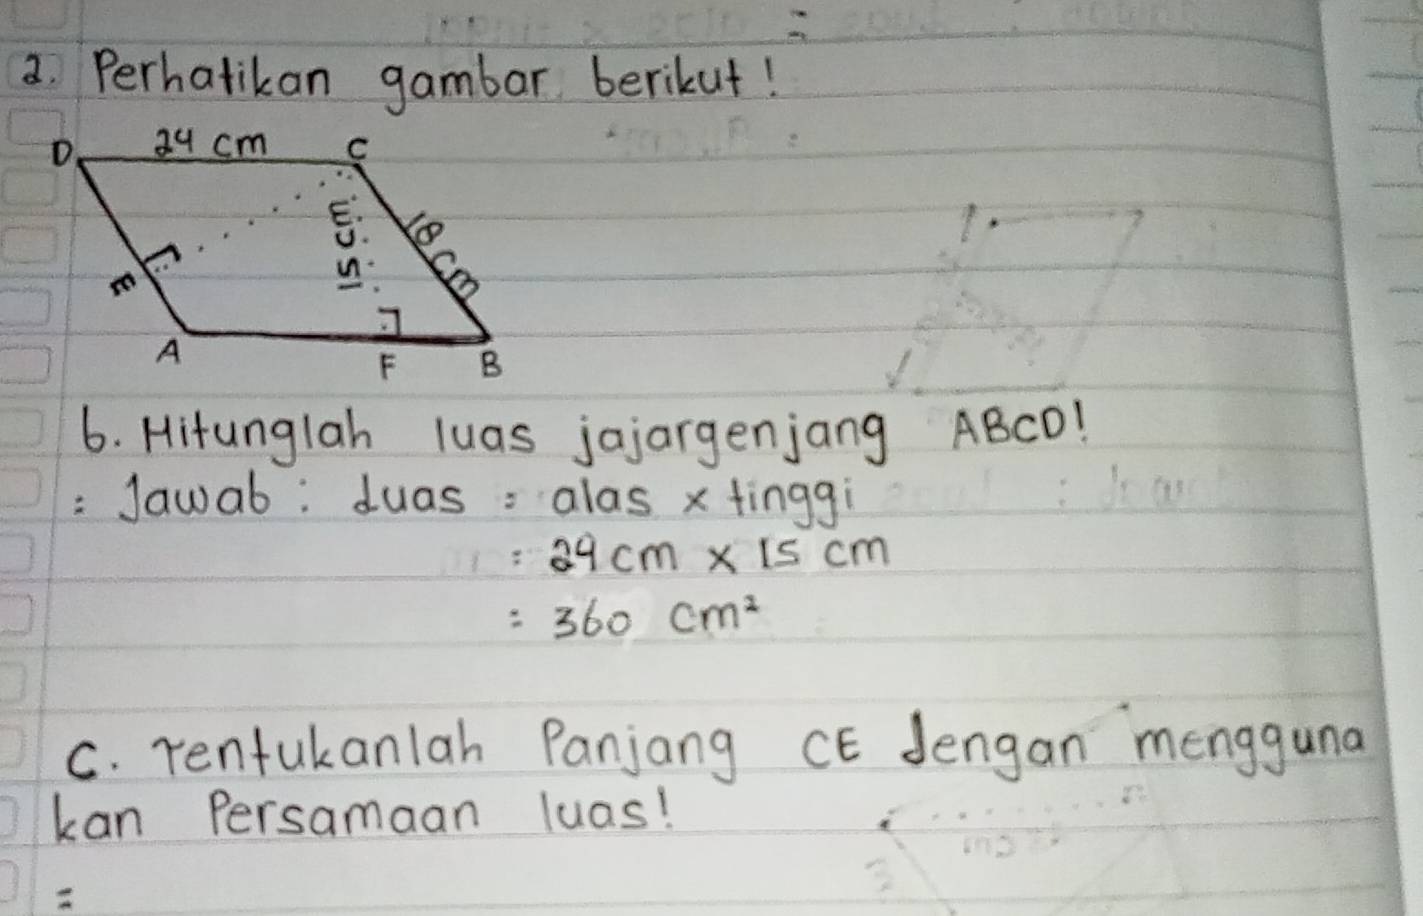 2. Perhatikan gambar berikut!
D 24 cm C
15 cm
18 cm
E
A F B
b. Hitunglah luas jajargenjang ABCD!
= Jawab : Luas = alas x tinggi
= 24 cm x 15 cm
= 360 cm²
C. Tentukanlah Panjang CE dengan mengguna
kan Persamaan luas!
=